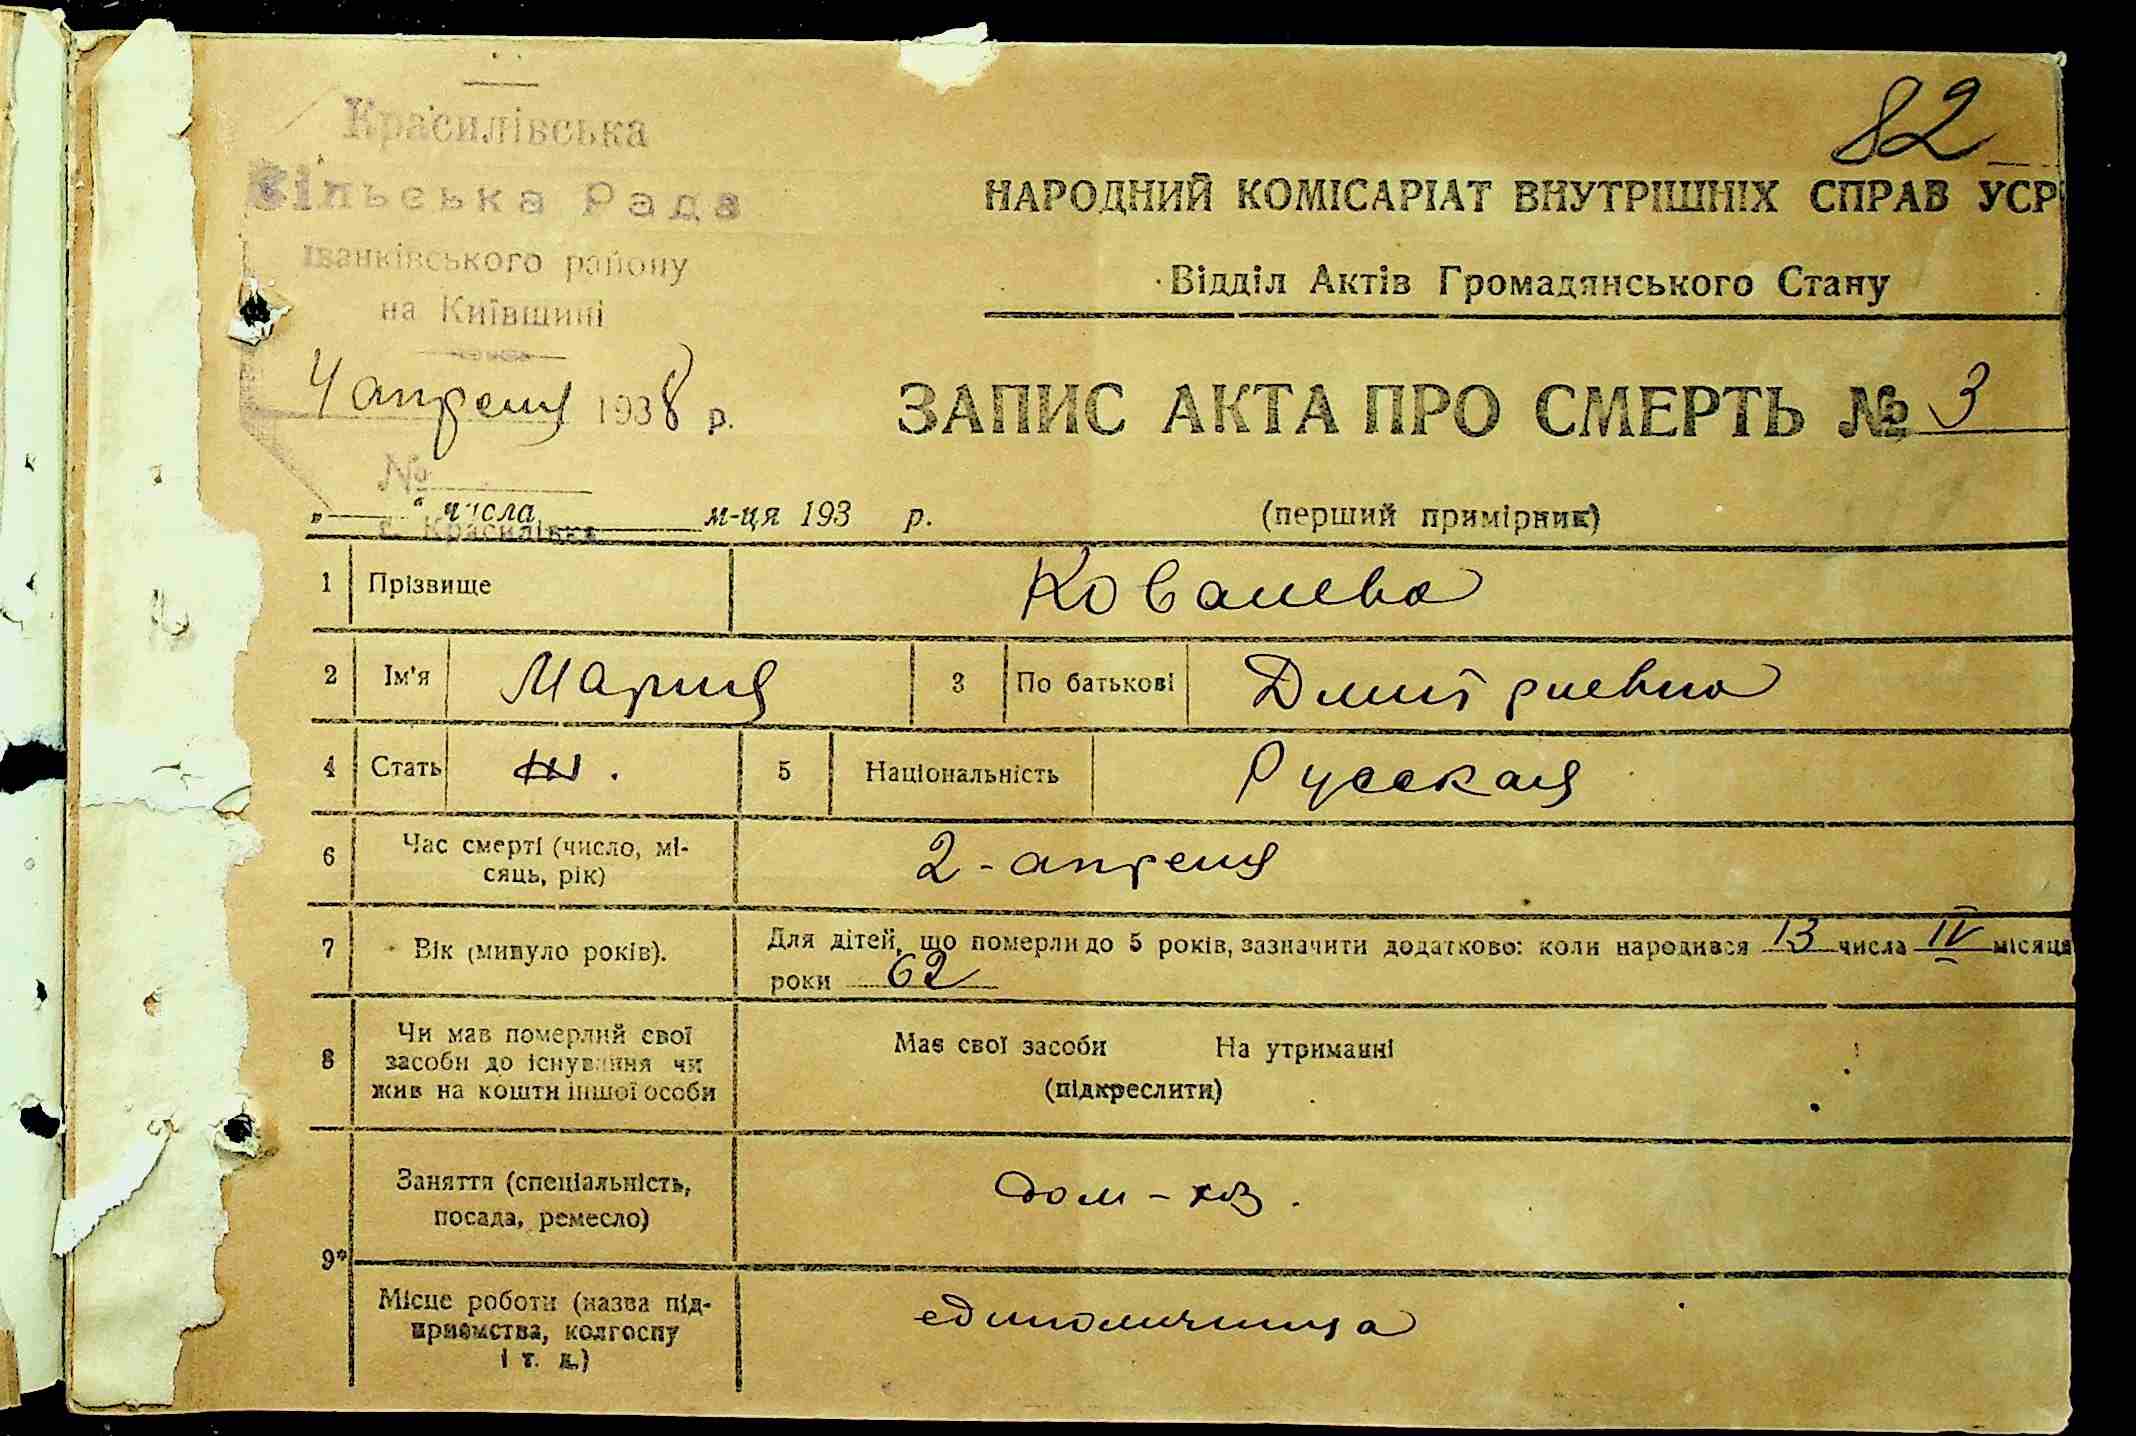 82
Красилівська
Сільська Рада
Іванківського району
на Київщині
4 апреля 1938 р.
№
с. Красилівка
НАРОДНИЙ КОМІСАРІАТ ВНУТРІШНІХ СПРАВ УСР
Відділ Актів Громадянського Стану
ЗАПИС АКТА ПРО СМЕРТЬ № 3
„ “ числа м-ця 193 р.
(перший примірник)
1 Прізвище Ковалева
2 Ім'я Мария 3 По батькові Дмитриевна
4 Стать ж. 5 Національність Русская
6 Час смерті (число, мі-
сяць, рік) 2 - апреля
7 Вік (минуло років). Для дітей, що померли до 5 років, зазначити додатково: коли народився 13 числа IV місяця
роки 62
8 Чи мав померлий свої
засоби до існування чи
жив на кошти іншої особи
Має свої засоби На утриманні
(підкреслити)
9* Заняття (спеціальність,
посада, ремесло) дом - хоз.
Місце роботи (назва під-
приємства, колгоспу
і т. д.) единоличница